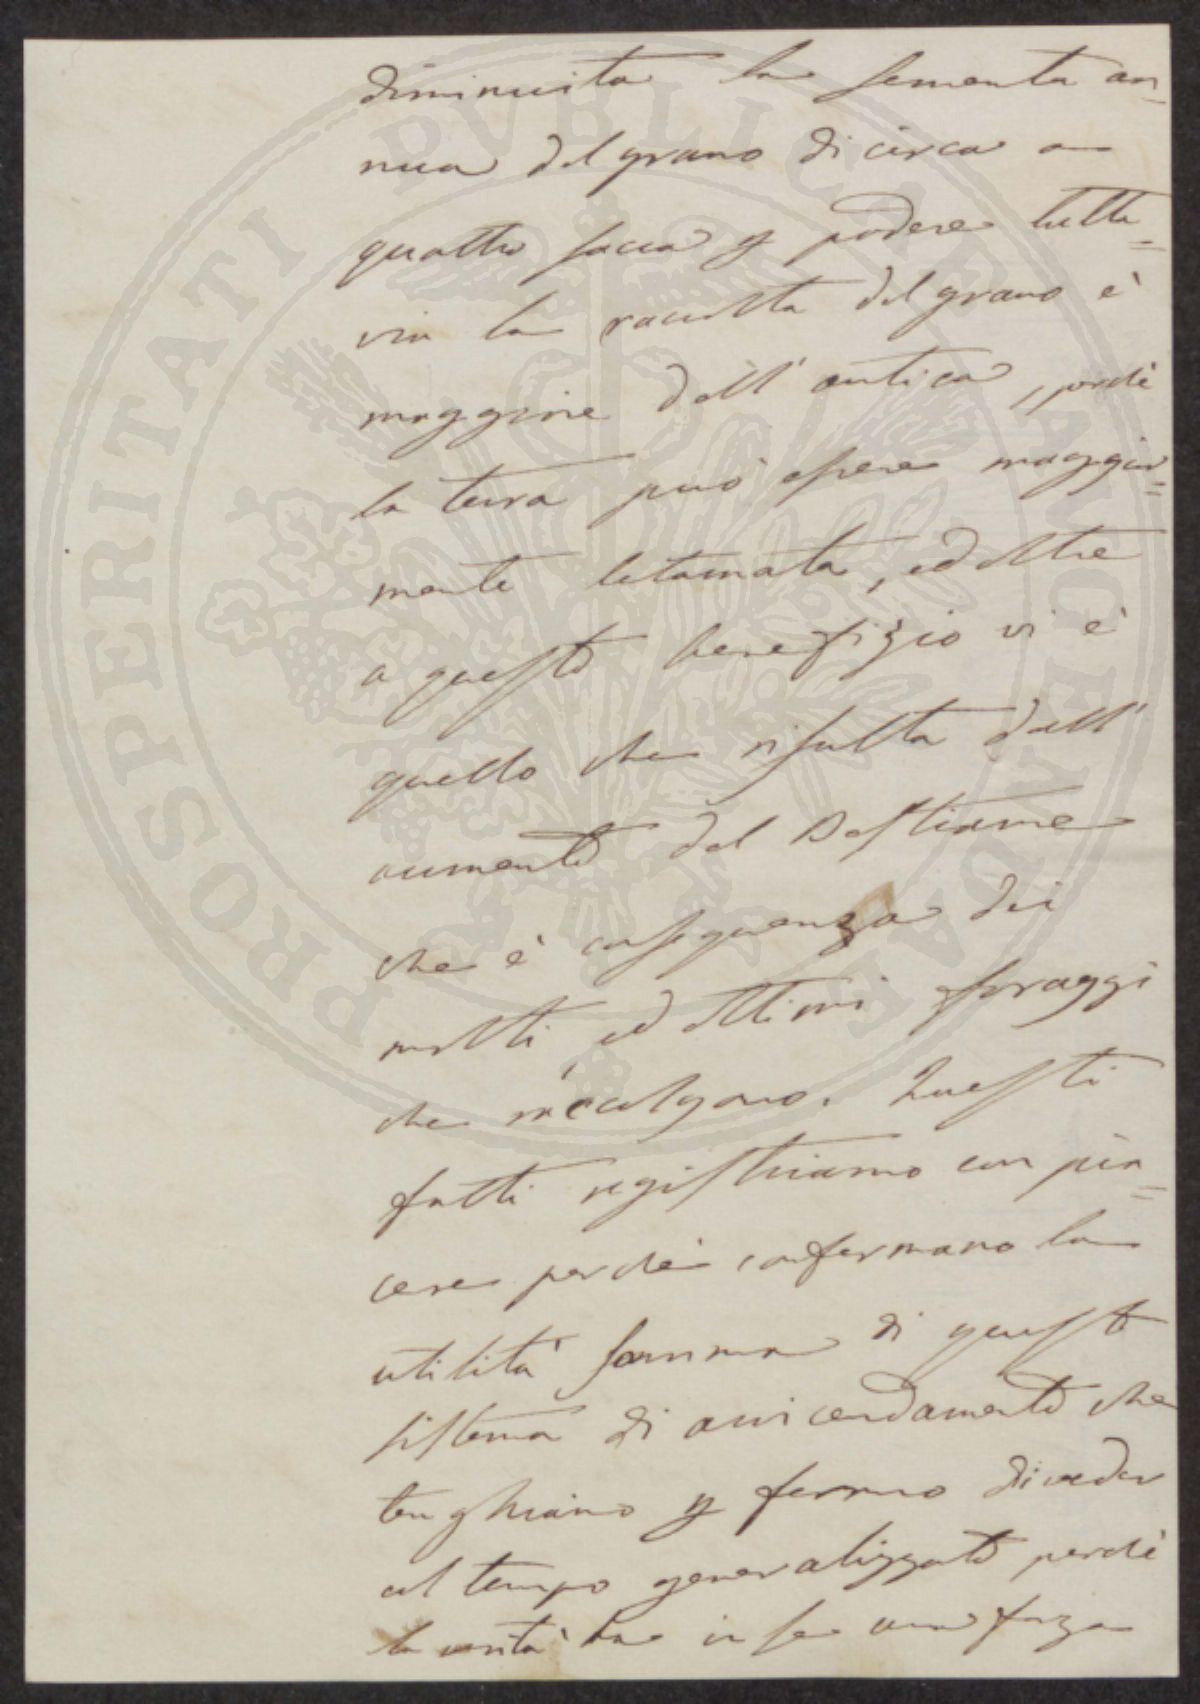 diminuita la sementa an-
nua del grano di circa a
quattro sacca p podere tutta=
via la raccolta del grano è
maggiore dell'antica, perchè
la terra può essere maggior=
mente letamata, ed oltre
a questo benefizio vi è
quello che risulta dall'
aumento del Bestiame
che è conseguenza dei
molti, ed ottimi foraggi
che raccolgono. Questi
fatti registriamo con pia=
cere perchè confermano la
utilità somma di questo
sistema di avvicendamento che
tenghiamo p fermo di veder
col tempo generalizzato perchè
la verità ha in se una forza
PROSPERITATI PVBLICAE AVGENDAE